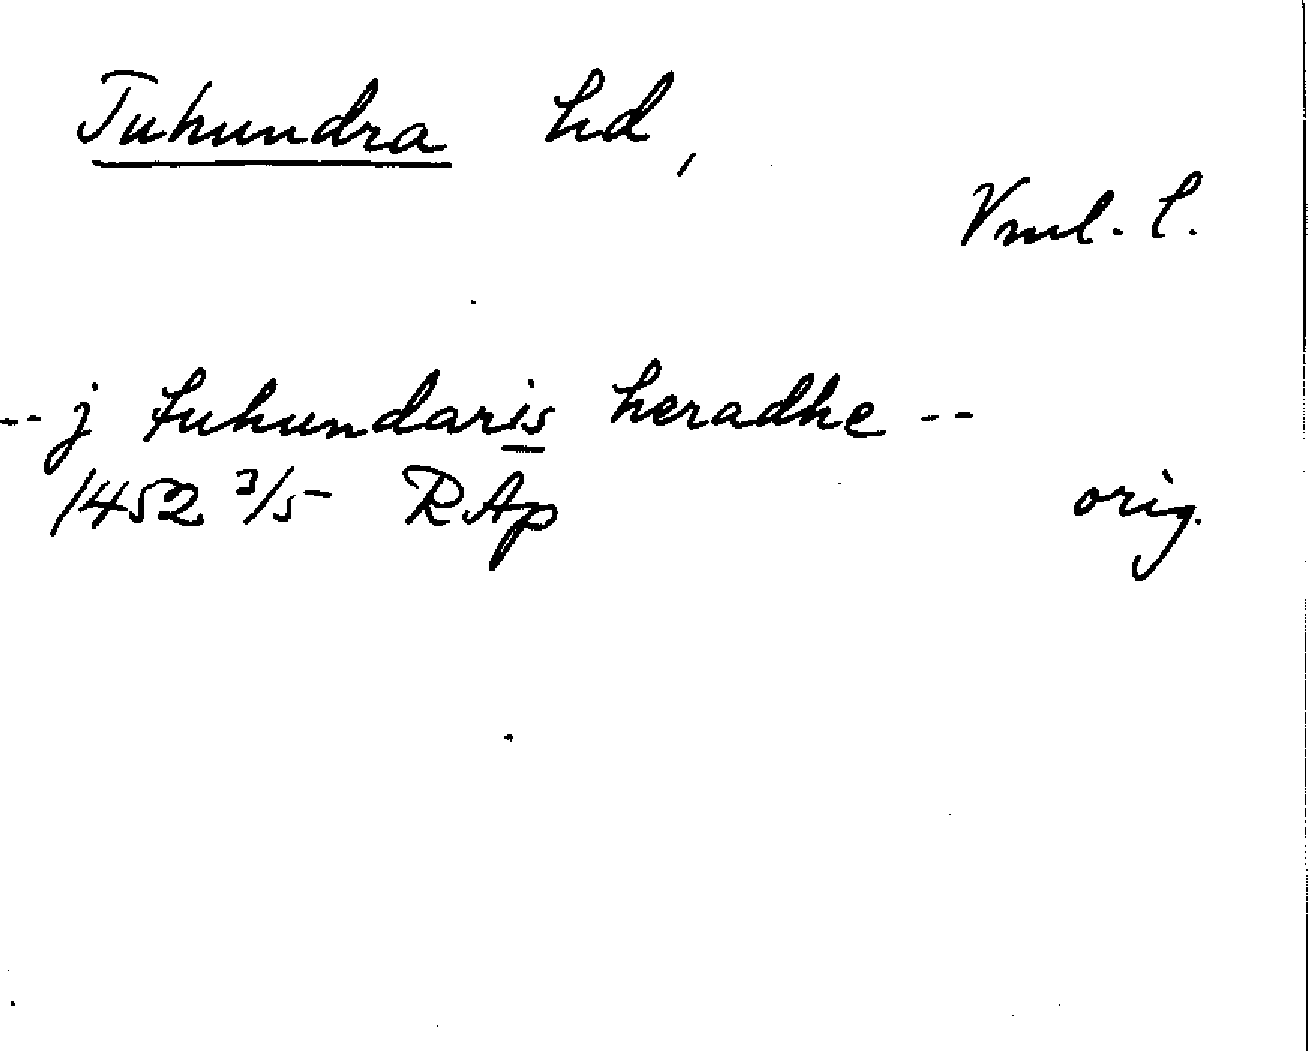 Tuhundra hd,
Vml. l.
-- j tuhundaris heradhe --
1452 3/5 RAp orig.